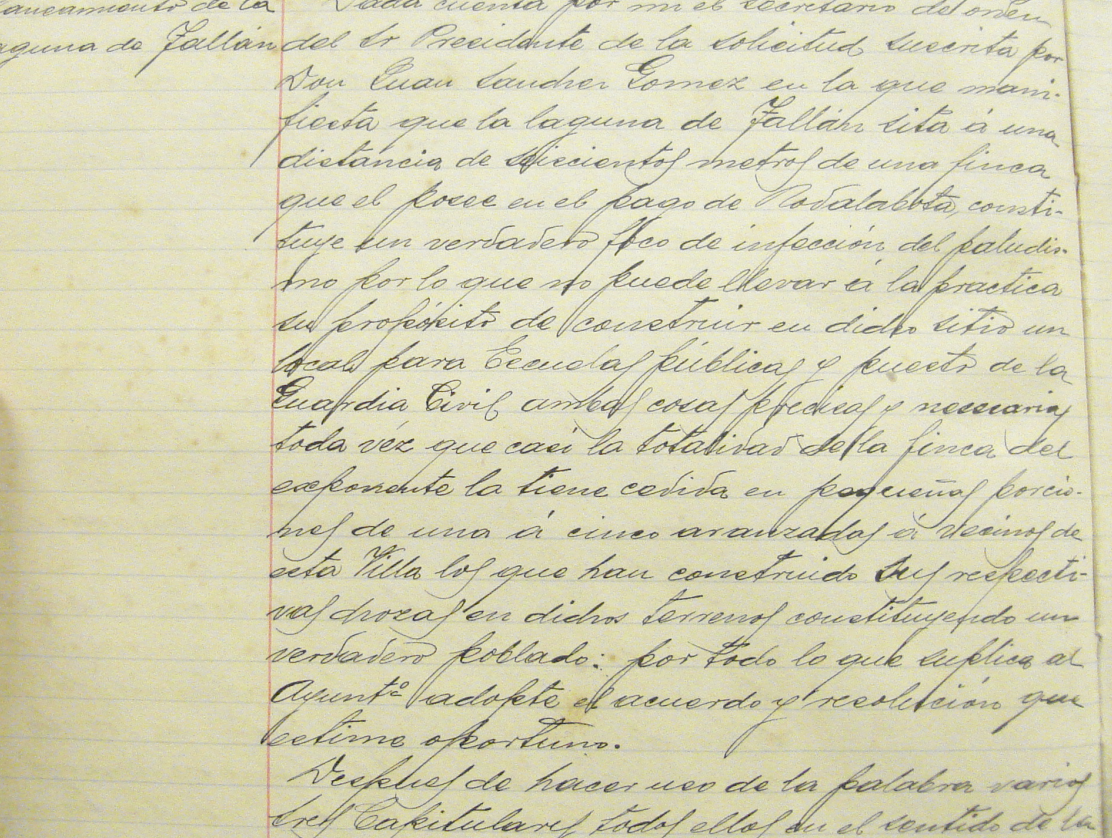 saneamiento de la
laguna de Tallán
Dada cuenta por mi el secretario de orden
del Sr Presidente de la solicitud suscrita por
Don Juan Sanchez Gomez en la que mani-
fiesta que la laguna de Tallán sita á una
distancia de seiscientos metros de una finca
que el posee en el pago de Rodalabota, consti-
tuye un verdadero foco de infección del paludis-
mo por lo que no puede llevar á la practica
su propósito de construir en dicho sitio un
local para Escuelas públicas y puesto de la
Guardia Civil ambas cosas precisas y necesarias
toda véz que casi la totalidad de la finca del
exponente la tiene cedida en pequeñas porcio-
nes de una á cinco aranzadas á vecinos de
esta Villa los que han construido sus respecti-
vas chozas en dichos terrenos constituyendo un
verdadero poblado: por todo lo que suplica al
Ayuntº adopte el acuerdo y resolución que
estime oportuno.
Despues de hacer uso de la palabra varios
Sres Capitulares todos ellos en el sentido de la